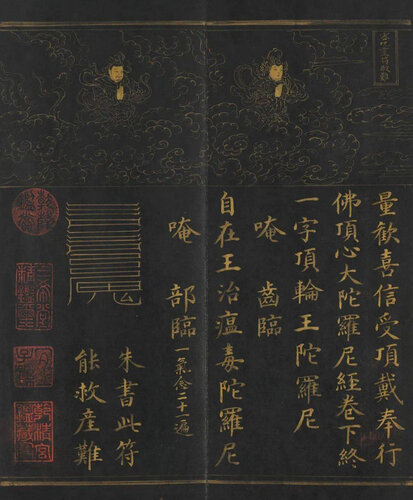 量歡喜信受頂戴奉行
佛頂心大陀羅尼經卷下終
一字頂輪王陀羅尼
唵 齒臨
自在王治瘟毒陀羅尼
唵 部臨 一氣念二十一遍
朱書此符
能救產難